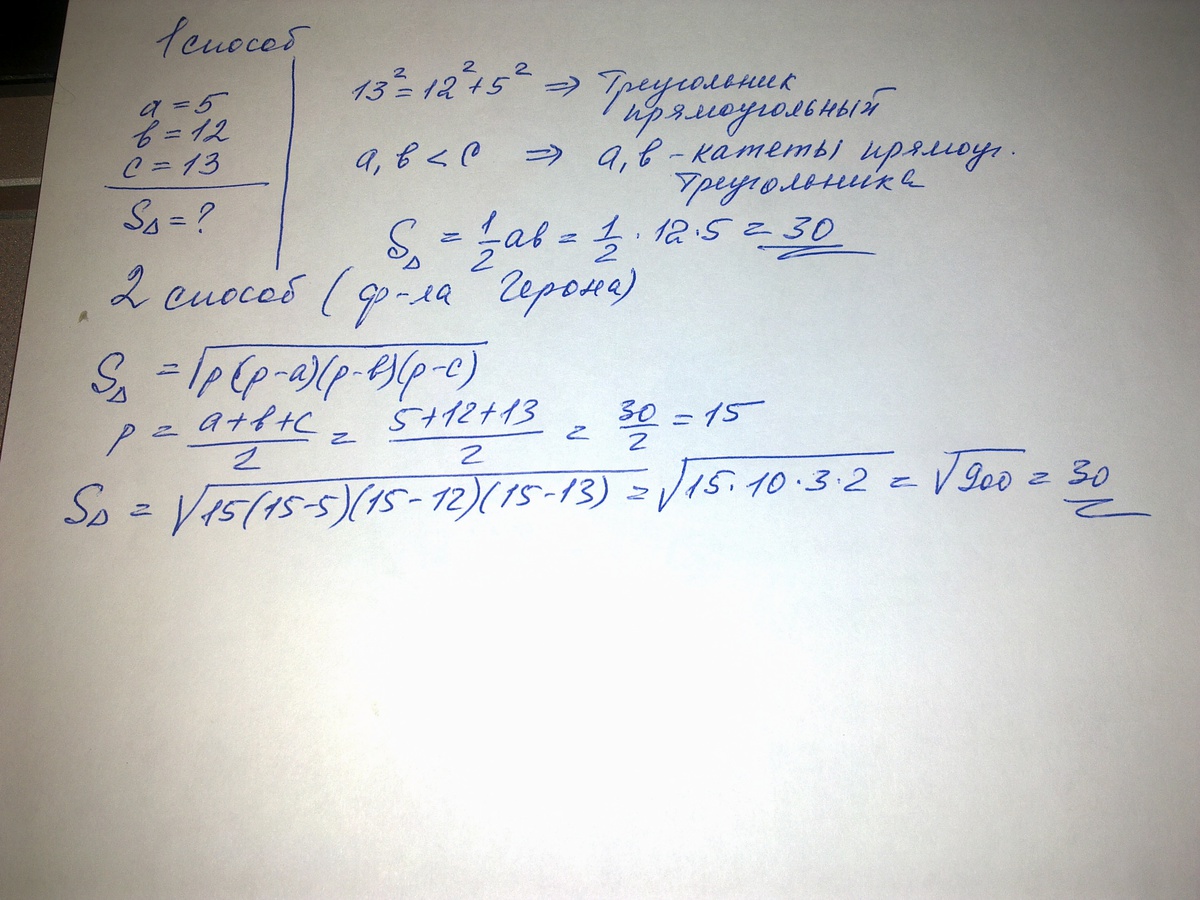 1 способ
a = 5
в = 12
c = 13
S△ = ?
13² = 12² + 5² ⇒ Треугольник
прямоугольный
a, в < c ⇒ a, в – катеты прямоуг.
треугольника
S△ = 1/2 aв = 1/2 · 12 · 5 = 30
2 способ ( ф-ла Герона)
S△ = √p(p-a)(p-в)(p-c)
p = a+в+c/2 = 5+12+13/2 = 30/2 = 15
S△ = √15(15-5)(15-12)(15-13) = √15·10·3·2 = √900 = 30